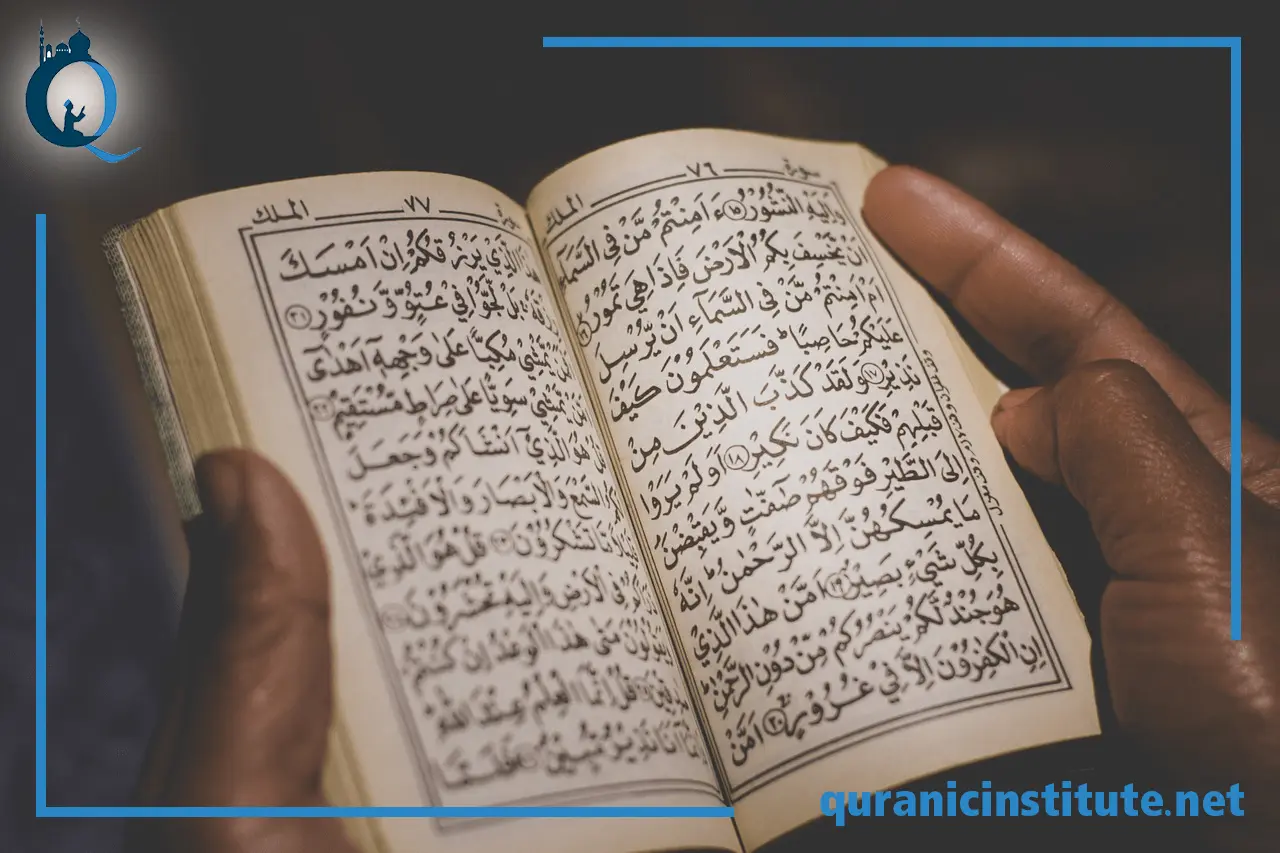 سورة ٧٦ الملك
وَاِلَيْهِ النُّشُوْرُ ١٥ ءَاَمِنْتُمْ مَّنْ فِى السَّمَآءِ
اَنْ يَّخْسِفَ بِكُمُ الْاَرْضَ فَاِذَا هِىَ تَمُوْرُ
اَمْ اَمِنْتُمْ مَّنْ فِى السَّمَآءِ اَنْ يُّرْسِلَ
عَلَيْكُمْ حَاصِبًا ؕ فَسَتَعْلَمُوْنَ كَيْفَ
نَذِيْرِ ١٧ وَلَقَدْ كَذَّبَ الَّذِيْنَ مِنْ
قَبْلِهِمْ فَكَيْفَ كَانَ نَكِيْرِ ١٨ اَوَلَمْ يَرَوْا
اِلَى الطَّيْرِ فَوْقَهُمْ صٰٓفّٰتٍ وَّيَقْبِضْنَ
مَا يُمْسِكُهُنَّ اِلَّا الرَّحْمٰنُ ؕ اِنَّهٗ
بِكُلِّ شَىْءٍۭ بَصِيْرٌ ١٩ اَمَّنْ هٰذَا الَّذِىْ
هُوَ جُنْدٌ لَّكُمْ يَنْصُرُكُمْ مِّنْ دُوْنِ الرَّحْمٰنِ ؕ
اِنِ الْكٰفِرُوْنَ اِلَّا فِىْ غُرُوْرٍ ٢٠ اَمَّنْ
سورة ٧٧ الملك
هٰذَا الَّذِىْ يَرْزُقُكُمْ اِنْ اَمْسَكَ
رِزْقَهٗ ۚ بَلْ لَّجُّوْا فِىْ عُتُوٍّ وَّنُفُوْرٍ ٢١
يَّمْشِىْ مُكِبًّا عَلٰى وَجْهِهٖۤ اَهْدٰٓى
يَّمْشِىْ سَوِيًّا عَلٰى صِرَاطٍ مُّسْتَقِيْمٍ ٢٢
قُلْ هُوَ الَّذِىْۤ اَنْشَاَكُمْ وَجَعَلَ
السَّمْعَ وَالْاَبْصَارَ وَالْاَفْـِٕدَةَ ؕ
قَلِيْلًا مَّا تَشْكُرُوْنَ ٢٣ قُلْ هُوَ الَّذِىْ
فِى الْاَرْضِ وَاِلَيْهِ تُحْشَرُوْنَ
وَيَقُوْلُوْنَ مَتٰى هٰذَا الْوَعْدُ اِنْ كُنْتُمْ
قُلْ اِنَّمَا الْعِلْمُ عِنْدَ اللّٰهِ
اَنَا نَذِيْرٌ مُّبِيْنٌ
quranicinstitute.net